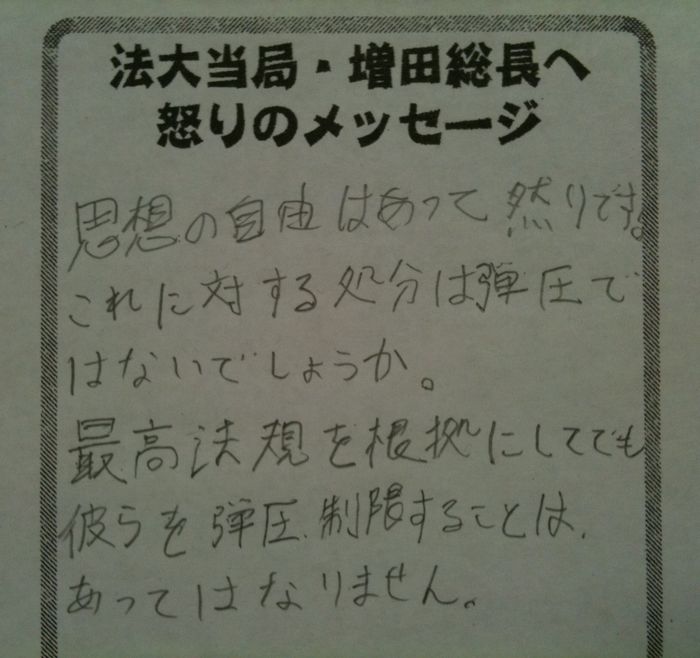 法大当局・増田総長へ
怒りのメッセージ
思想の自由はあって然りです。
これに対する処分は弾圧で
はないでしょうか。
最高法規を根拠にしてでも
彼らを弾圧、制限することは、
あってはなりません。